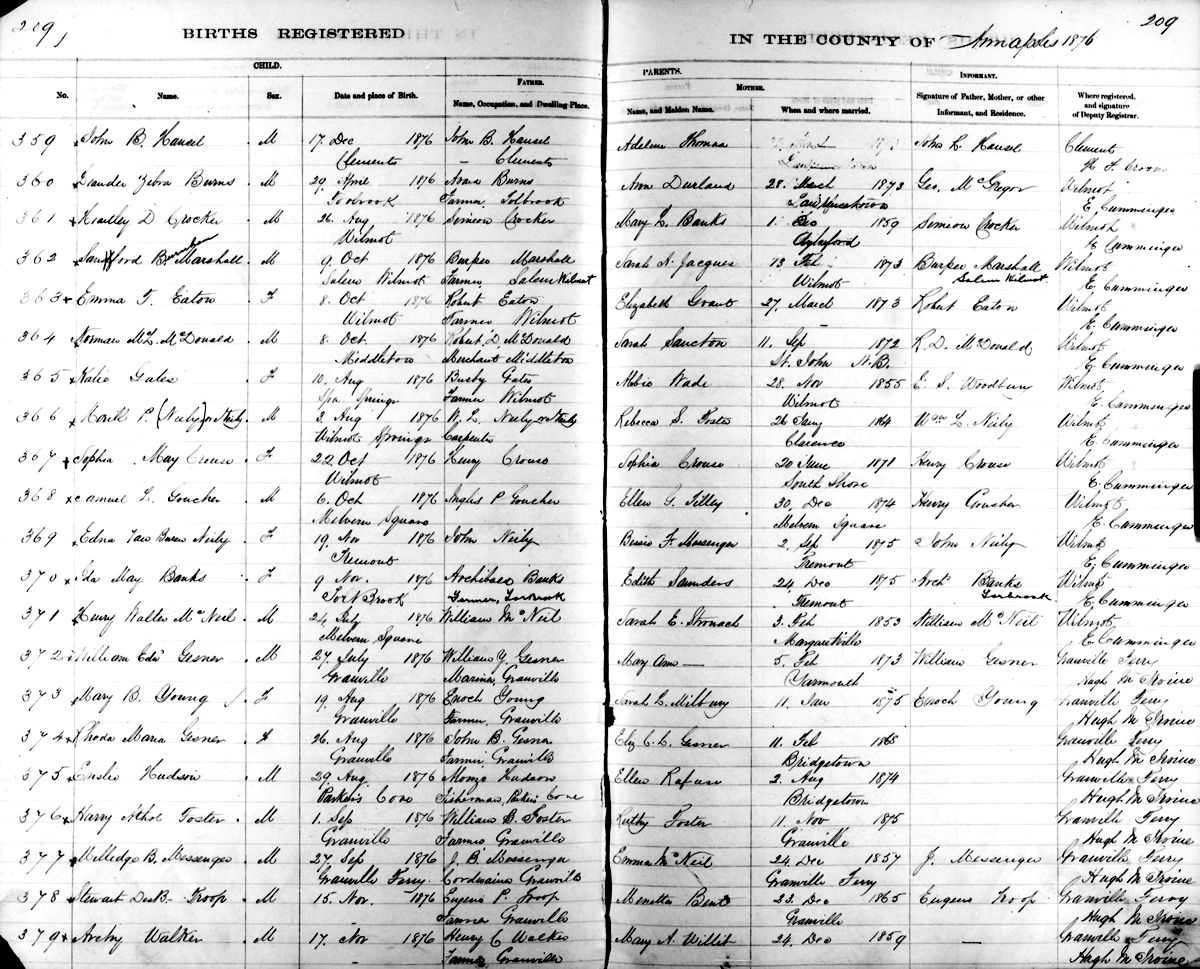 209 209
BIRTHS REGISTERED IN THE COUNTY OF Annapolis 1876
CHILD. PARENTS. INFORMANT.
No. Name. Sex. Date and place of Birth. FATHER. Name, Occupation, and Dwelling Place. MOTHER. Name, and Maiden Name. When and where married. Signature of Father, Mother, or other Informant, and Residence. Where registered, and signature of Deputy Registrar.
359 John B. Hansel M 17. Dec 1876 John B. Hansel Adelem Thomas John L. Hansel Clements
Clements - Clements
360 Leander Zebra Burns M 29. 1876 Burns Ann Durland 28. March 1873 Geo. McGregor Wilmot
Torbrook Farmer, Torbrook E Cumminger
361 D Crocker M 26. Aug 1876 Simeon Crocker Mary L. Banks 1. Dec 1859 Simeon Crocker Wilmot
Wilmot Aylesford E Cumminger
362 Sandford Burnham Marshall M 9. Oct 1876 Burpee Marshall Sarah N. Jacques 13 Feb 1873 Burpee Marshall Wilmot
Salem Wilmot Farmer Salem Wilmot Wilmot Salem Wilmot E. Cumminger
363 Emma F. Eaton F 8. Oct 1876 Robert Eaton Elizabeth Grant 27. March 1873 Robert Eaton Wilmot
Wilmot Farmer Wilmot - E. Cumminger
364 Norman McL. McDonald M 8. Oct 1876 Robert D. McDonald Sarah Sancton 11. Sep 1872 R. D. McDonald Wilmot
Middleton Merchant Middleton St. John N.B. E. Cumminger
365 Katie Gates F 10. Aug 1876 Busby Gates Abbie Wade 28. Nov 1855 E. S. Woodbury Wilmot
Spa Springs Farmer Wilmot Wilmot E. Cumminger
366 P. (Neily) or Neily M 3. Aug 1876 W. L. Neily or Neily Rebecca S. Foster 26 Jany 1864 Wm L. Neily Wilmot
Wilmot Springs Carpenter Clarence E. Cumminger
367 Sophia May Crouse F 22 Oct 1876 Henry Crouse Sophia Crouse 20 June 1871 Henry Crouse Wilmot
Wilmot South Shore E. Cumminger
368 Samuel L. Goucher M 6. Oct 1876 Inglis P. Goucher Ellen G. Tilley 30, Dec 1874 Henry Goucher Wilmot
Melvern Square Melvern Square E. Cumminger
369 Edna Van Buren Neily F 19. Nov 1876 John Neily Bessie F. Messenger 2. Sep 1875 John Neily Wilmot
Tremont Tremont E. Cumminger
370 Ida May Banks F 9 Nov. 1876 Archibald Banks Edith Saunders 24. Dec 1875 Archd Banks Wilmot
Torbrook Farmer, Torbrook Tremont Torbrook E. Cumminger
371 Henry Walter McNeil M 24. July 1876 William McNeil Sarah E. Stronach 3. Feb 1853 William McNeil Wilmot
Melvern Square Margaretville E Cumminger
372 William Edw Gesner M 27. July 1876 William Y. Gesner Mary Ann — 5. Feb 1873 William Gesner Granville Ferry
Granville Marine, Granville Yarmouth Hugh M Irvine
373 Mary B. Young F 19. Aug 1876 Enoch Young Sarah L. Milbury 11. Jan 1875 Enoch Young Granville Ferry
Granville Farmer, Granville Hugh M Irvine
374 Rhoda Maria Gesner F 26. Aug 1876 John B. Gesner Eliz C. L. Gesner 11. Feb 1868 Granville Ferry
Granville Farmer Granville Bridgetown Hugh M Irvine
375 Hudson M 29. Aug 1876 Alonzo Hudson Ellen Rafuse 2. Aug 1874 Granville Ferry
Parkers Cove Fisherman, Parkers Cove Bridgetown Hugh M Irvine
376 Harry Athol Foster M 1. Sep 1876 William B. Foster Foster 11. Nov 1875 Granville Ferry
Granville Farmer Granville Granville Hugh M Irvine
377 Milledge B. Messenger M 27. Sep 1876 J. B. Messenger Emma McNeil 24. Dec 1857 J. Messenger Granville Ferry
Granville Ferry. Cordwainer Granville Granville Ferry Hugh M Irvine
378 Stewart DesB— Troop M 15. Nov. 1876 Eugene P. Troop Menetta Bent 23. Dec 1865 Eugene Troop Granville Ferry
- Farmer Granville Granville Hugh M Irvine
379 Archy Walker M 17. Nov 1876 Henry C Walker Mary A. Willit 24. Dec 1859 — Granville Ferry
- Farmer, Granville Hugh M Irvine